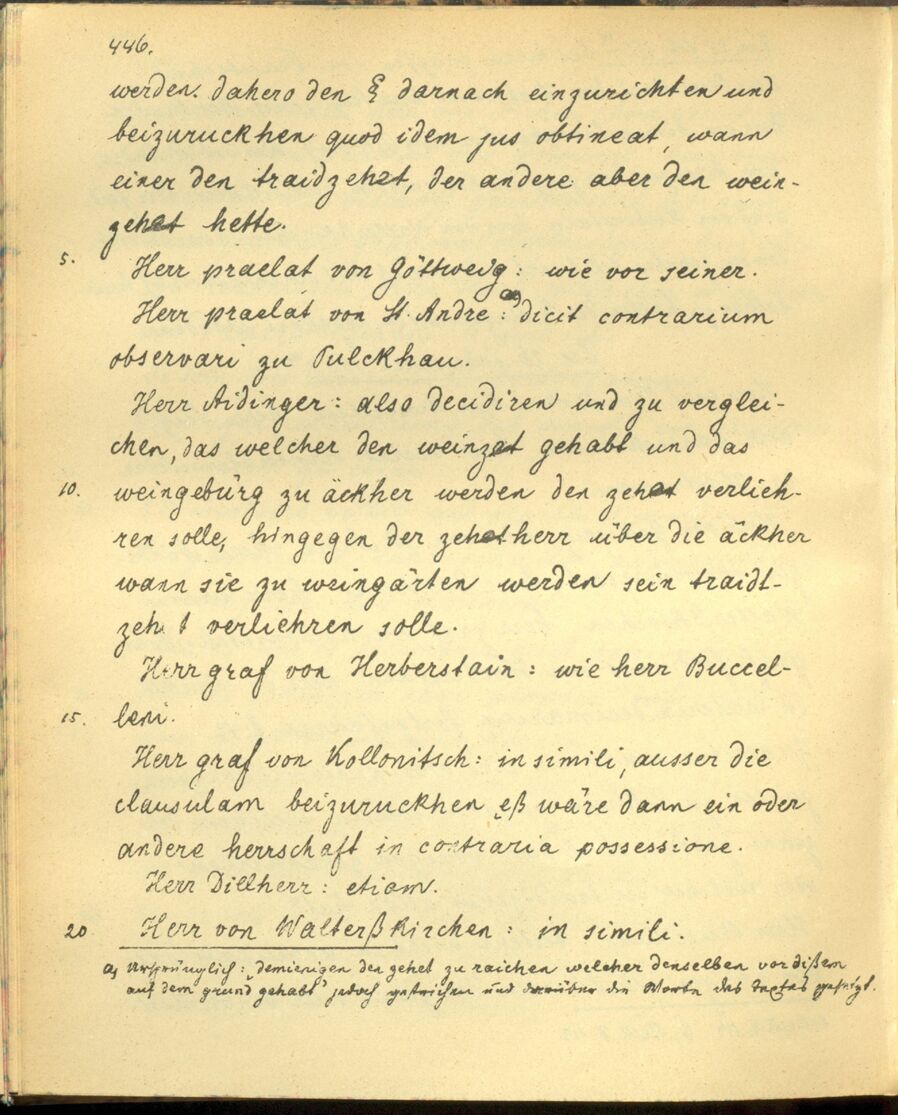 446.
werden. dahero den § darnach einzurichten und
beizuruckhen quod idem jus obtineat, wann
einer den traidzehet, der andere aber den wein-
zehet hette.
5.
Herr praelat von Göttweig: wie vor seiner.
Herr praelat von St. Andre: a) dicit contrarium
observari zu Pulckhau.
Herr Aidinger: also decidiren und zu verglei-
chen, das welcher den weinzet gehabt und das
10.
weingebürg zu äckher werden den zehet verlieh-
ren solle, hingegen der zehetherr über die äckher
wann sie zu weingärten werden sein traidt-
zehet verliehren solle.
Herr graf von Herberstain: wie herr Buccel-
15.
leni.
Herr graf von Kollonitsch: in simili, ausser die
clausulam beizuruckhen „eß wäre dann ein oder
andere herrschaft in contraria possessione.
Herr Dillherr: etiam.
20
Herr von Walterßkirchen: in simili.
a) Ursprünglich: „demienigen den zehet zu raichen welcher denselben vor dißem
auf dem grund gehabt" jedoch gestrichen und darüber die Worte des Textes gesetzt.